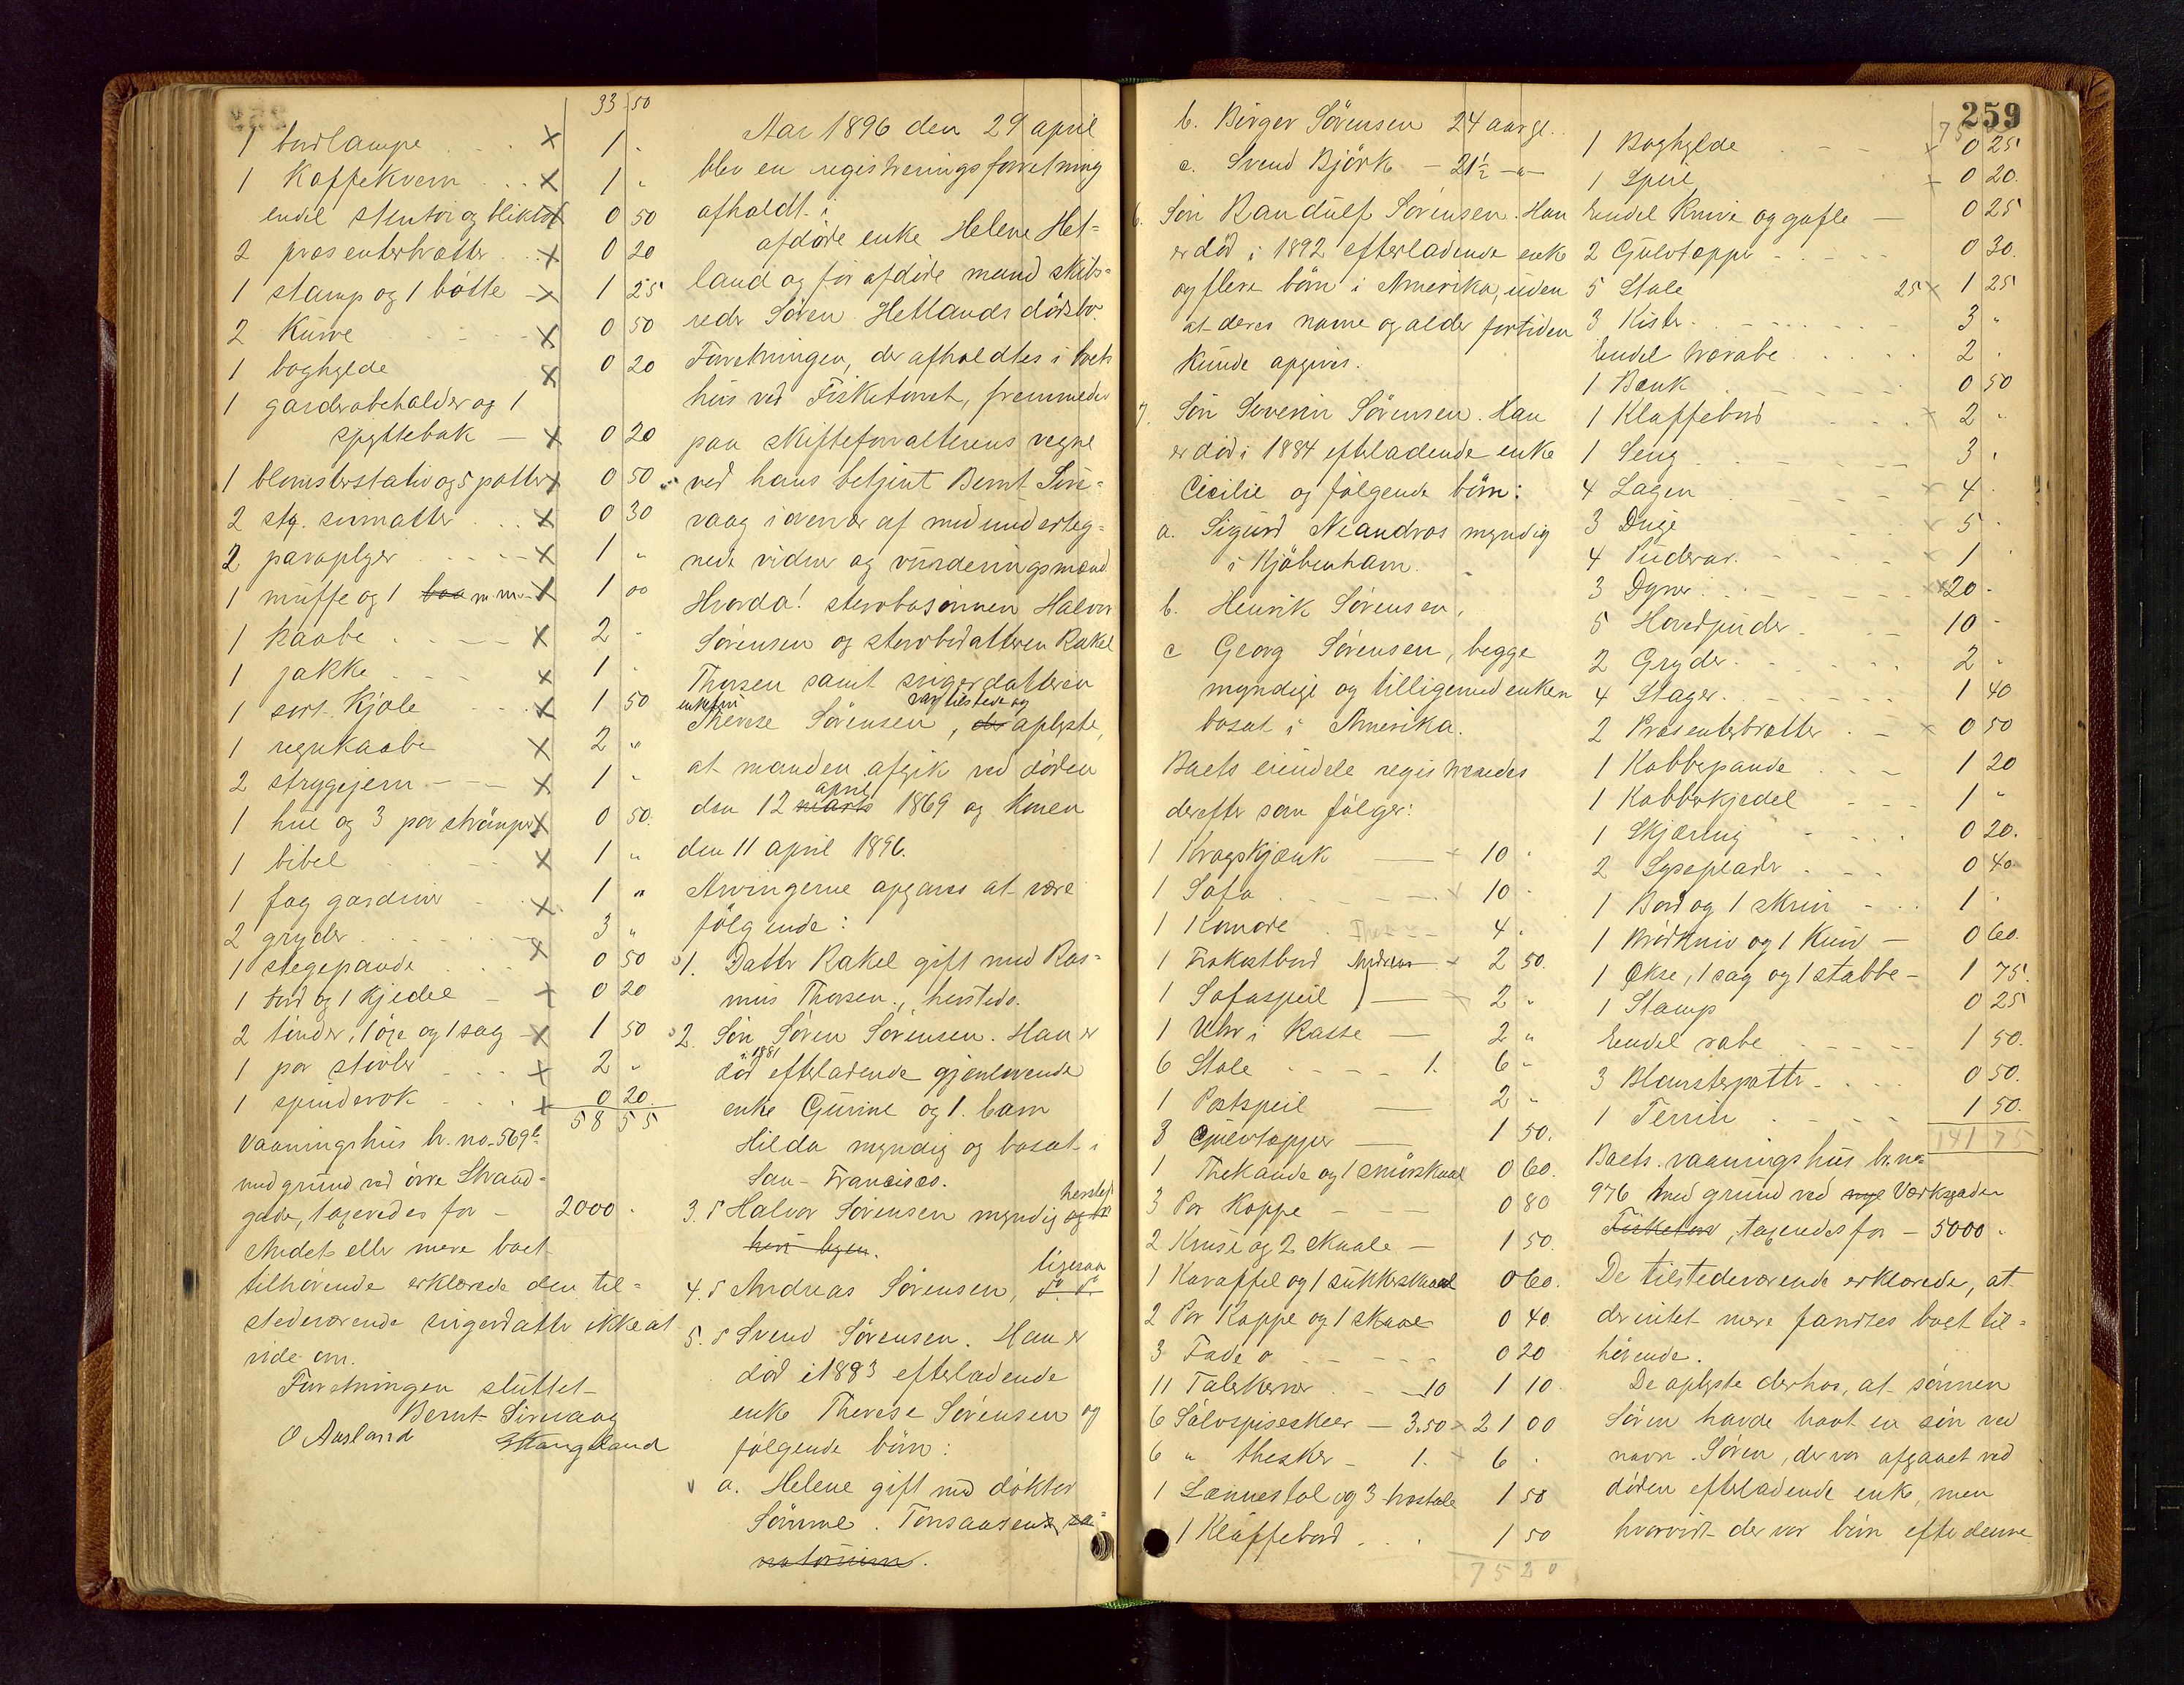 33 50
1 bordlampe × 1 "
1 Kaffekvern × 1 "
endel stentøi og bliktøi × 0 50
2 præsenterbrætter × 0 20
1 stamp og 1 bötte × 1 25
2 Kurve × 0 50
1 boghylde × 0 20
1 garderobeholder og 1
spyttebak × 0 20
1 blomsterstativ og 5 potter × 0 50
2 stq. sivmatter × 0 30
2 paraplyer × 1 "
1 muffe og 1 boa m.m. × 1 00
1 Kaabe × 2 "
1 jakke × 1 "
1 sort Kjole × 1 50
1 regnkaabe × 2 "
2 strygejern × 1 "
1 hue og 3 par strömper × 0 50.
1 bibel × 1 "
1 fag gardiner × 1 "
2 gryder × 3 "
1 stegepande 0 50
1 bord og 1 Kjedel × 0 20
2 tönder, 1 öxe og 1 sag × 1 50
1 par støvler × 2 "
1 spinderok × 0 20.
58 55
Vaaningshus br. no. 569b
med grund ved övre Strand-
gade, taxeredes for - 2000.
Andet eller mere boet
tilhørende erklærede den til-
stedeværende svigerdatter ikke at
vide om.
Forretningen sluttet
Bernt Sirevaag
O Aasland

Aar 1896 den 29 april
blev en registreringsforretning
afholdt i
afdøde enke Helene Het-
land og før afdøde mand skibs-
reder Sören Hetlands dödsbo.
Forretningen, der afholdtes i boets
hus ved Fisketorvet, fremmedes
paa skifteforvalterens vegne
ved hans betjent Bernt Sire-
vaag i overvær af medunderteg-
nede vidner og vurderingsmænd.
Hvorda! stervbosönnen Halvor
Sörensen og stervbodatteren Rakel
Thorsen samt svigerdatteren
enkefru var tilstede og
Therese Sörensen, der oplyste,
at manden afgik ved döden
april
den 12 marts 1869 og Konen
den 11 april 1896.
Arvingerne opgaves at være
fölgende:
1. Datter Rakel gift med Ras-
mus Thorsen, hersteds.
2. Sön Sören Sörensen. Han er
i 1881
död efterladende gjenlevende
enke Gurine og 1. barn
Hilda myndig og bosat i
San-Francisco.
hersteds
3. S Halvor Sörensen myndig og bor
her i byen.
ligesaa
4. S Andreas Sörensen, d. d.
5. S Svend Sörensen. Han er
död i 1893 efterladende
enke Therese Sörensen og
følgende börn:
a. Helene gift med doktor
Sömme. Tonsaasens sa-
natorium.

b. Birger Sörensen 24 aar gl.
c. Svend Björk - 21½ -"-
6. Sön Randulf Sörensen. Han
er död i 1892 efterladende enke
og flere börn i Amerika, uden
at deres navne og alder fortiden
kunde opgives.
7. Sön Severin Sörensen. Han
er död i 1884 efterladende enke
Cecilie og fölgende börn:
a. Sigurd Neandros myndig
i Kjöbenham.
b. Henrik Sörensen,
c Georg Sörensen, begge
myndige og tilligemed enken
bosat i Amerika.
Boets eiendele registreredes
derefter som følger:
1 Kragskjænk 10 "
1 Sofa 10 "
1 Komode 4 "
1 Frokostbord Andreas 2 50.
1 Sofaspeil 2 "
1 Uhr i Kasse 2 "
6 Stole 1. 6 "
1 Postspeil 2 "
3 Gulvtepper 1 50.
1 Thekande og 1 smörskaal 0 60.
3 Par Koppe 0 80
2 Kruse og 2 Skaale 1 50.
1 Karaffel og 1 sukkerskaal 0 60.
2 Par Koppe og 1 skaal 0 40.
3 Fade 0 20
11 Talerkener 10 1 10.
6 Sølvspiseskeer - 3.50 21 00
6 " theskeer - 1. 6 "
1 Lænnestol og 3 træstole 1 50
1 Klaffebord 1 50
75 20

259
75
1 Boghylde 0 25
1 Speil 0 20.
Endel Knive og gafle 0 25
2 Gulvtepper 0 30.
5 Stole 25 1 25
3 Kister 3 "
Endel 2 "
1 Bænk 0 50
1 Klaffebord 2 "
1 Seng 3 "
4 Lagen 4 "
3 Duge 5 "
4 Pudevar 1 "
3 Dyner 20 "
5 Hovedpuder 10 "
2 Gryder 2 "
4 Stager 1 40
2 Præsenterbrætter 0 50
1 Kobberpande 1 20
1 Kobberkjedel 1 "
1 Skjærtøi 0 20.
2 0 40
1 Bord og 1 skrin 1 "
1 Brödkniv og 1 Kurv 0 60.
1 Økse, 1 sag og 1 stabbe 1 75.
1 Stamp 0 25
Endel 1 50.
3 Blomsterpotter 0 50.
1 Terrin 1 50.
141 75
Boets vaaningshus br. no
976 med grund ved nye Verksgaden
Fisketorv, taxeredes for - 5000 "
De tilstedeværende erklærede, at
der intet mere fandtes boet til-
hörende.
De oplyste derhos, at sönnen
Sören havde havt en sön ved
navn Sören, der var afgaaet ved
döden efterladende enke, men
hvorvidt der var börn efter denne